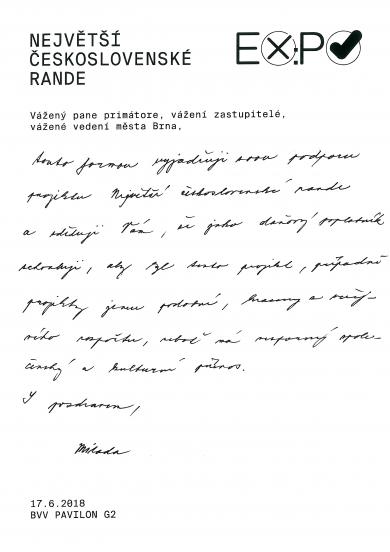 NEJVĚTŠÍ
ČESKOSLOVENSKÉ
RANDE
EXPO
Vážený pane primátore, vážení zastupitelé,
vážené vedení města Brna,
touto formou vyjadřuji svou podporu
projektu Největší československé rande
a sděluji Vám, že jako daňový poplatník
, aby byl tento projekt, případně
projekty jemu podobné, hrazeny z veřej-
ného rozpočtu, neboť má nesporný spole-
čenský a kulturní přínos.
S pozdravem,
Milada
17.6.2018
BVV PAVILON G2